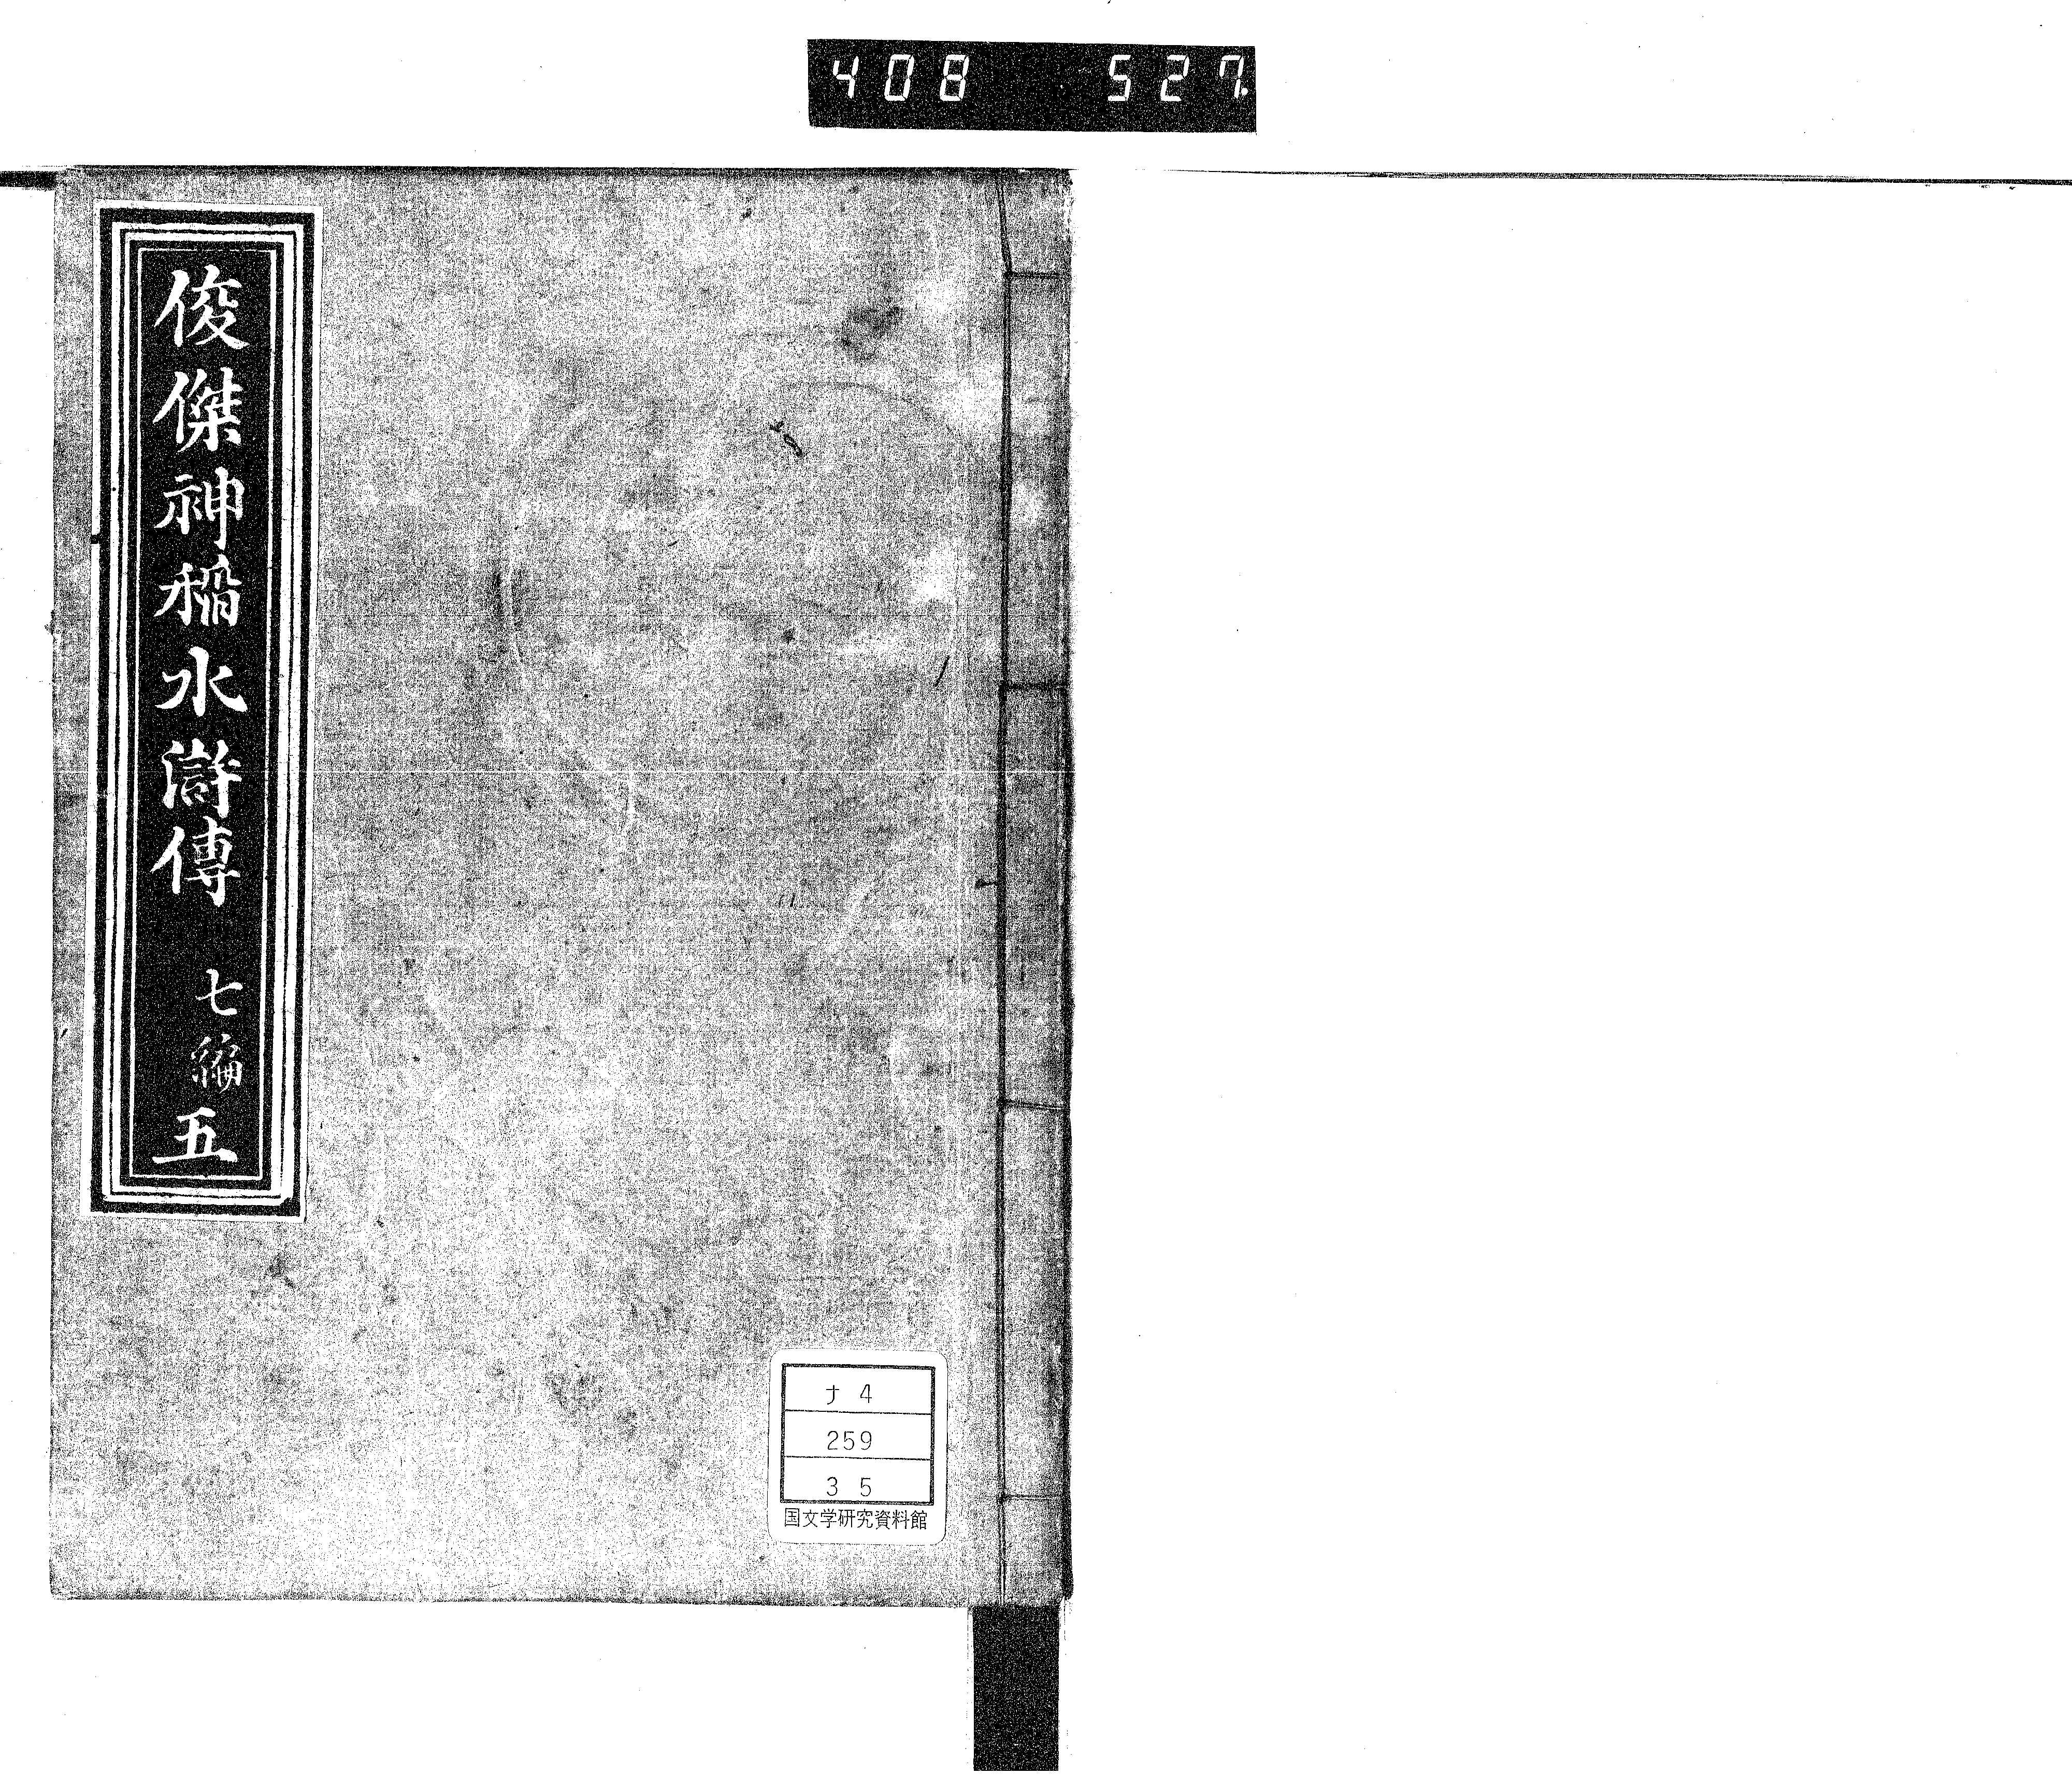 408 527.
俊傑神稲水滸傳 七編 五
ナ 4
259
3 5
国文学研究資料館